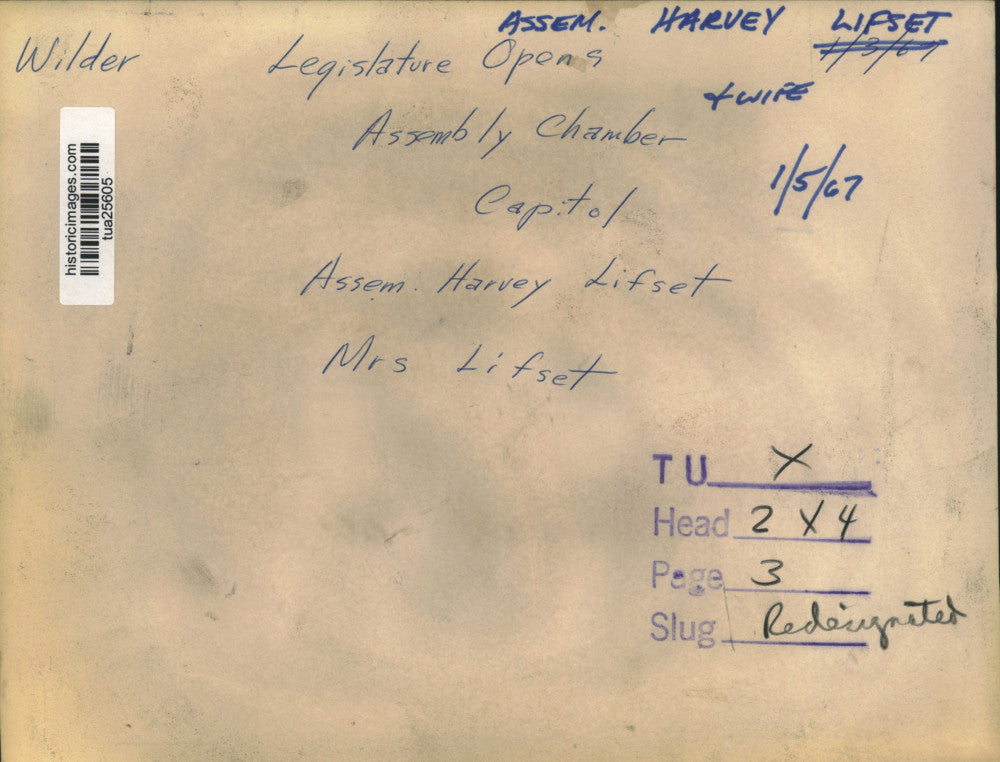 ASSEM. HARVEY LIFSET
Wilder
Legislature Opens
1/3/67
+ WIFE
Assembly Chamber
Capitol
1/5/67
Assem. Harvey Lifset
Mrs Lifset
historicimages.com
tua25605
TU X
Head 2 X 4
Page 3
Slug Redesignated